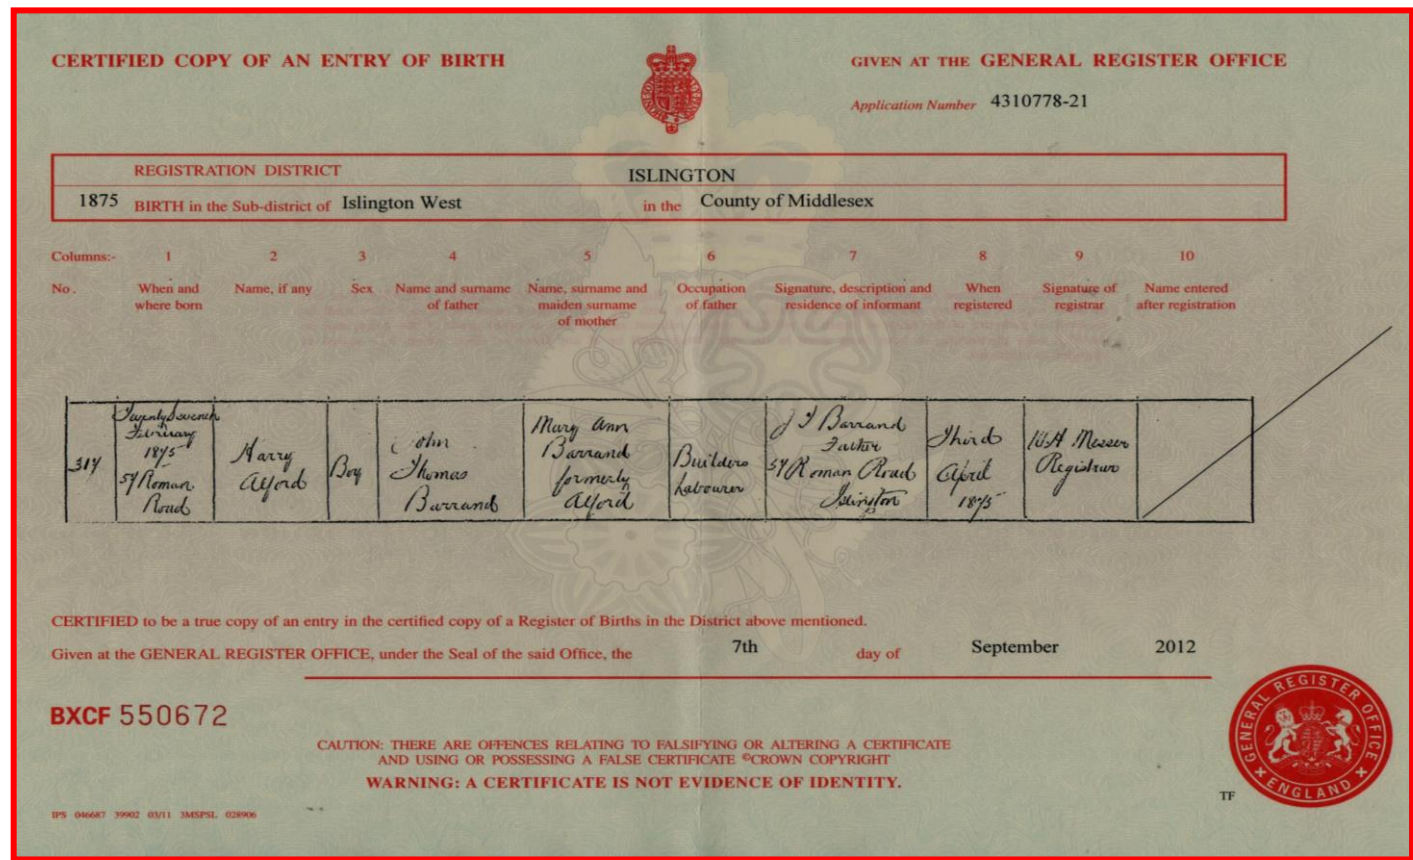 CERTIFIED COPY OF AN ENTRY OF BIRTH
GIVEN AT THE GENERAL REGISTER OFFICE
Application Number 4310778-21
REGISTRATION DISTRICT ISLINGTON
1875 BIRTH in the Sub-district of Islington West in the County of Middlesex
Columns:- 1 2 3 4 5 6 7 8 9 10
No. When and where born Name, if any Sex Name and surname of father Name, surname and maiden surname of mother Occupation of father Signature, description and residence of informant When registered Signature of registrar Name entered after registration
317
Twenty Seventh
February
1875
57 Roman
Road
Harry
Alford
Boy
John
Thomas
Barrand
Mary Ann
Barrand
formerly
Alford
Builders
Labourer
J T Barrand
Father
57 Roman Road
Islington
Third
April
1875
Messer
Registrar
CERTIFIED to be a true copy of an entry in the certified copy of a Register of Births in the District above mentioned.
Given at the GENERAL REGISTER OFFICE, under the Seal of the said Office, the 7th day of September 2012
BXCF 550672
CAUTION: THERE ARE OFFENCES RELATING TO FALSIFYING OR ALTERING A CERTIFICATE
AND USING OR POSSESSING A FALSE CERTIFICATE ©CROWN COPYRIGHT
WARNING: A CERTIFICATE IS NOT EVIDENCE OF IDENTITY.
GENERAL REGISTER OFFICE
ENGLAND
TF
IPS 046687 39902 03/11 3MSPSL 028906